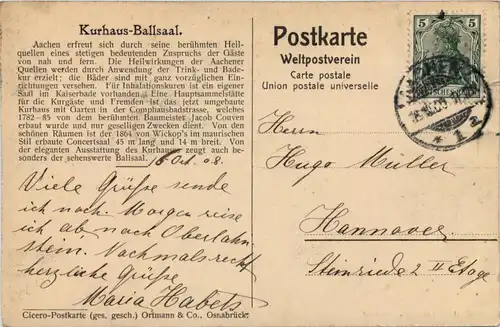 Kurhaus-Ballsaal.
Aachen erfreut sich durch seine berühmten Heil-
quellen eines stetigen bedeutenden Zuspruchs der Gäste
von nah und fern. Die Heilwirkungen der Aachener
Quellen werden durch Anwendung der Trink- und Bade-
kur erzielt; die Bäder sind mit ganz vorzüglichen Ein-
richtungen versehen. Für Inhalationskuren ist ein eigener
Saal im Kaiserbade vorhanden. Eine Hauptsammelstätte
für die Kurgäste und Fremden ist das jetzt umgebaute
Kurhaus mit Garten in der Comphausbadstrasse, welches
1782-85 von dem berühmten Baumeister Jacob Couven
erbaut wurde und nur geselligen Zwecken dient. Von den
schönen Räumen ist der 1864 von Wickop's im maurischen
Stil erbaute Concertsaal 45 m lang und 14 m breit. Von
der eleganten Ausstattung des Kurhauses zeugt auch be-
sonders der sehenswerte Ballsaal.
16 Oct. 08.
Viele Grüsse sende
ich noch. Morgen reise
ich ab nach Oberlahn-
stein. Nochmals recht
herzliche Grüsse
Maria Habets
Cicero-Postkarte (ges. gesch.) Ortmann & Co., Osnabrück.
Postkarte
Weltpostverein
Carte postale
Union postale universelle
5 5
AACHEN
* 1 a
Herrn
Hugo Müller
Hannover
Steinriede 2 II Etage